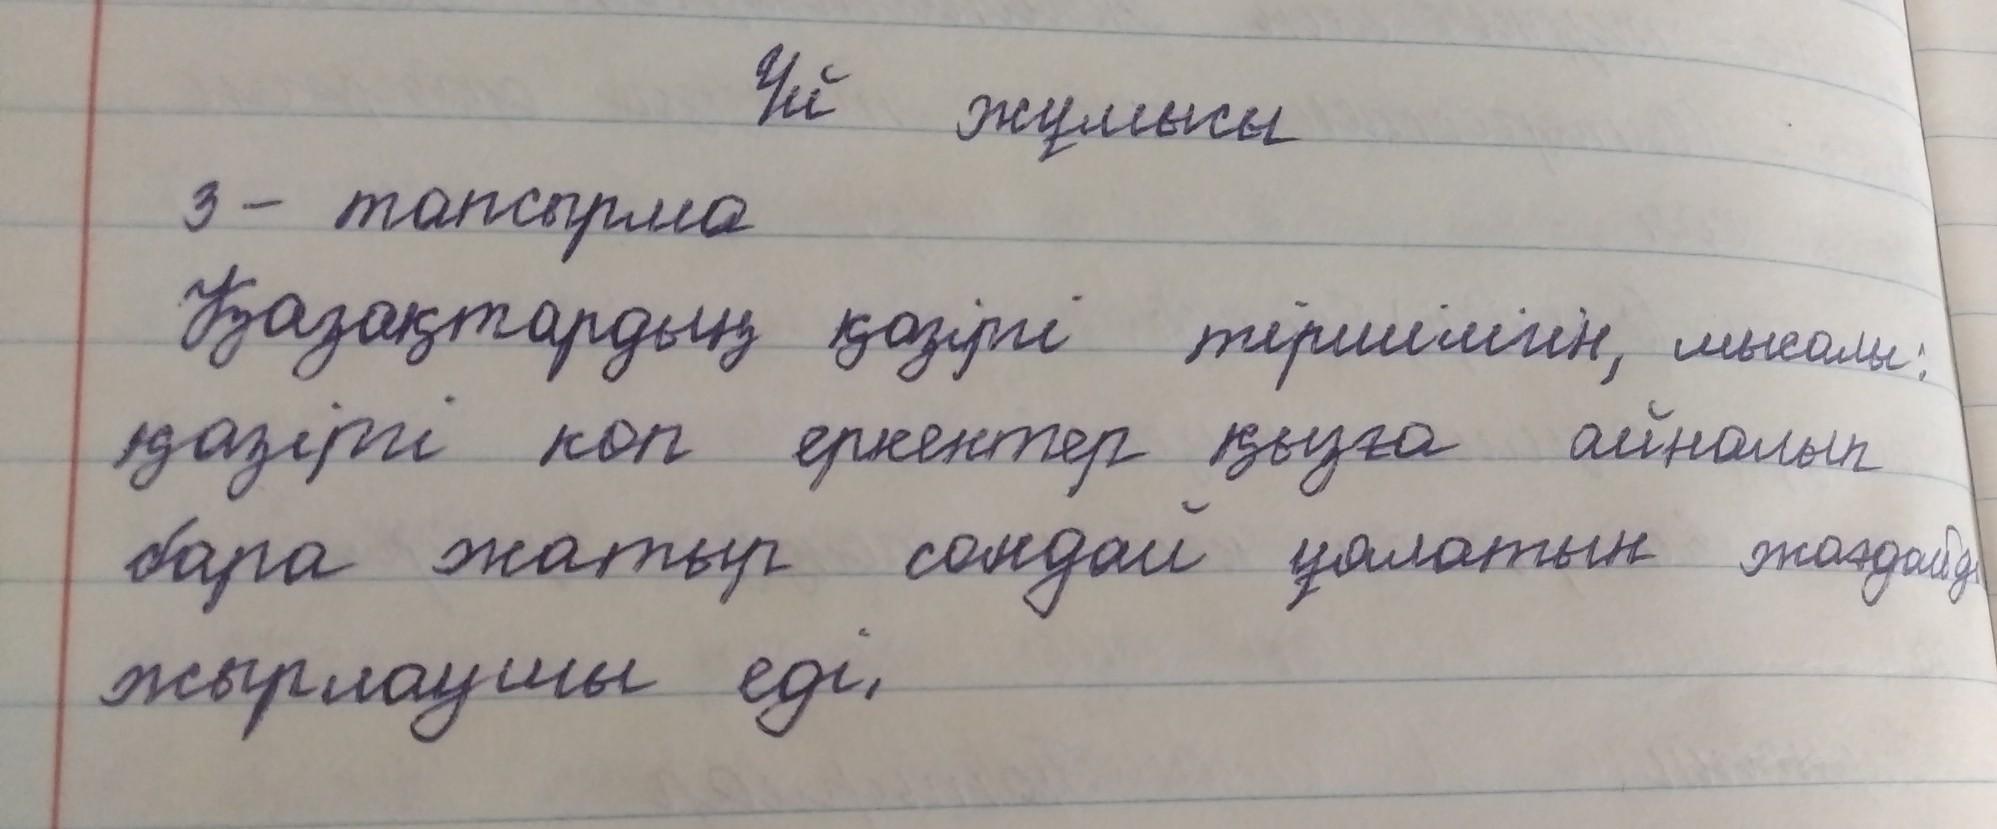 Үй жұмысы
3 - тапсырма
Қазақтардың қазіргі тіршілігін, мысалы:
қазіргі көп еркектер қызға айналып
бара жатыр сондай ұялатын жағдайды
жырлаушы еді.